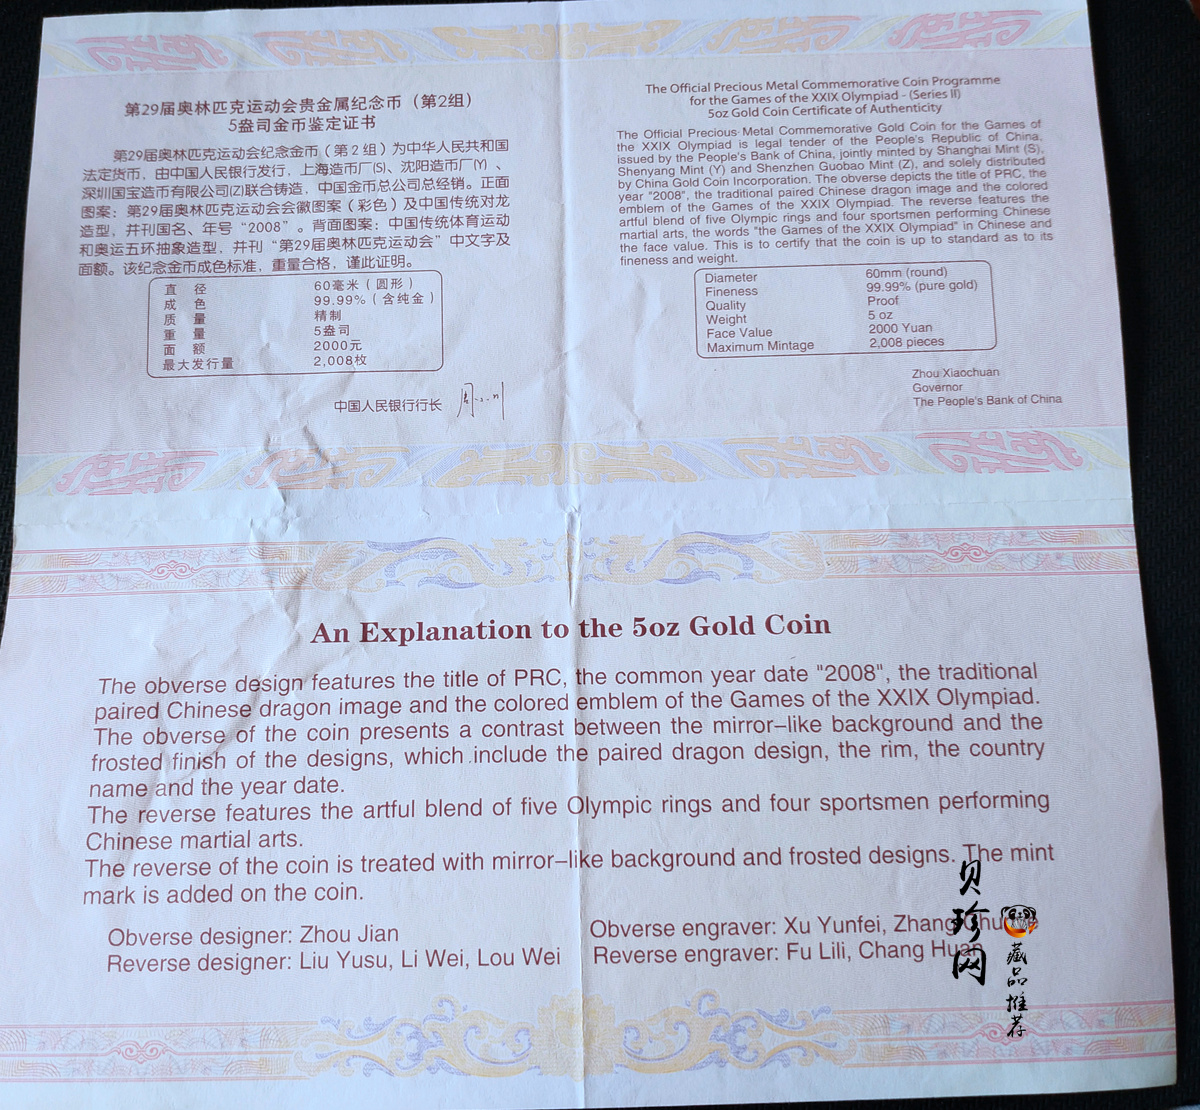 第29届奥林匹克运动会贵金属纪念币（第2组）
5盎司金币鉴定证书
第29届奥林匹克运动会纪念金币（第2组）为中华人民共和国
法定货币，由中国人民银行发行，上海造币厂(S)、沈阳造币厂(Y)、
深圳国宝造币有限公司(Z)联合铸造，中国金币总公司总经销。正面
图案：第29届奥林匹克运动会会徽图案（彩色）及中国传统对龙
造型，并刊国名、年号“2008”。背面图案：中国传统体育运动
和奥运五环抽象造型，并刊“第29届奥林匹克运动会”中文字及
面额。该纪念金币成色标准，重量合格，谨此证明。
直 径 60毫米（圆形）
成 色 99.99%（含纯金）
质 量 精制
重 量 5盎司
面 额 2000元
最大发行量 2,008枚
中国人民银行行长
The Official Precious Metal Commemorative Coin Programme
for the Games of the XXIX Olympiad - (Series II)
5oz Gold Coin Certificate of Authenticity
The Official Precious Metal Commemorative Gold Coin for the Games of
the XXIX Olympiad is legal tender of the People's Republic of China,
issued by the People's Bank of China, jointly minted by Shanghai Mint (S),
Shenyang Mint (Y) and Shenzhen Guobao Mint (Z), and solely distributed
by China Gold Coin Incorporation. The obverse depicts the title of PRC, the
year "2008", the traditional paired Chinese dragon image and the colored
emblem of the Games of the XXIX Olympiad. The reverse features the
artful blend of five Olympic rings and four sportsmen performing Chinese
martial arts, the words "the Games of the XXIX Olympiad" in Chinese and
the face value. This is to certify that the coin is up to standard as to its
fineness and weight.
Diameter 60mm (round)
Fineness 99.99% (pure gold)
Quality Proof
Weight 5 oz
Face Value 2000 Yuan
Maximum Mintage 2,008 pieces
Zhou Xiaochuan
Governor
The People's Bank of China
An Explanation to the 5oz Gold Coin
The obverse design features the title of PRC, the common year date "2008", the traditional
paired Chinese dragon image and the colored emblem of the Games of the XXIX Olympiad.
The obverse of the coin presents a contrast between the mirror–like background and the
frosted finish of the designs, which include the paired dragon design, the rim, the country
name and the year date.
The reverse features the artful blend of five Olympic rings and four sportsmen performing
Chinese martial arts.
The reverse of the coin is treated with mirror–like background and frosted designs. The mint
mark is added on the coin.
Obverse designer: Zhou Jian
Reverse designer: Liu Yusu, Li Wei, Lou Wei
Obverse engraver: Xu Yunfei, Zhang
Reverse engraver: Fu Lili, Chang Huan
贝珍网
藏品推荐